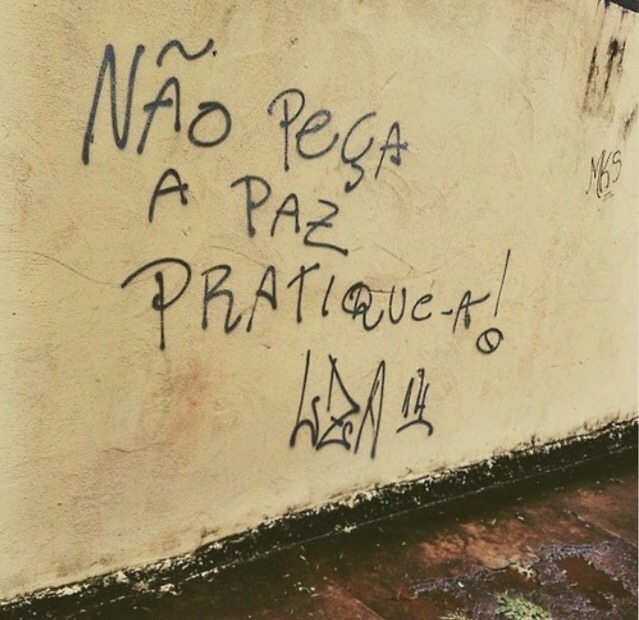 NÃO PEÇA
A PAZ
PRATIQUE-A!
MKS